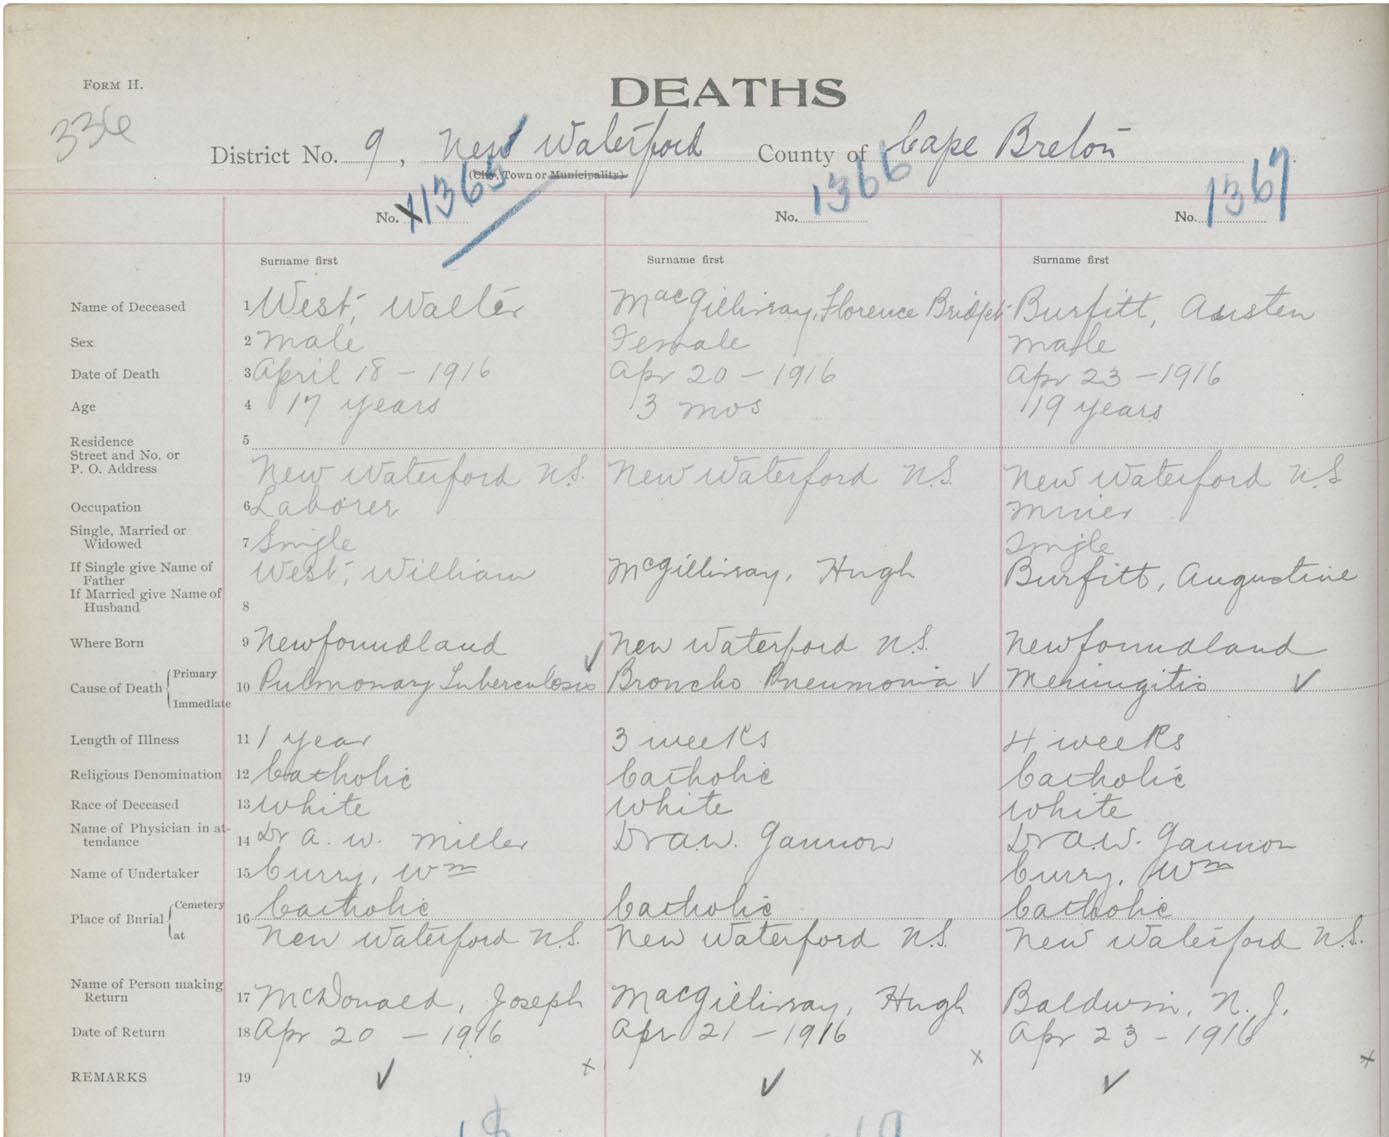 FORM H.
DEATHS
336
District No. 9, New Waterford County of Cape Breton
(City, Town or Municipality)
No. X 1365 No. 1366 No. 1367
Surname first Surname first Surname first
Name of Deceased 1 West, Walter MacGillivray, Florence Bridget Burfitt, Austen
Sex 2 Male Female Male
Date of Death 3 April 18 - 1916 Apr 20 - 1916 Apr 23 - 1916
Age 4 17 years 3 mos 19 years
Residence 5
Street and No. or
P. O. Address New Waterford N.S. New Waterford N.S. New Waterford N.S
Occupation 6 Laborer Miner
Single, Married or
Widowed 7 Single Single
If Single give Name of
Father West, William McGillivray, Hugh Burfitt, Augustine
If Married give Name of
Husband 8
Where Born 9 Newfoundland New Waterford N.S. Newfoundland
Cause of Death { Primary
10 Pulmonary Tuberculosis ✓ Broncho Pneumonia ✓ Meningitis ✓
Immediate
Length of Illness 11 1 year 3 weeks 4 weeks
Religious Denomination 12 Catholic Catholic Catholic
Race of Deceased 13 White White White
Name of Physician in at-
tendance 14 Dr A. W. Miller Dr A.W. Gannon Dr A.W. Gannon
Name of Undertaker 15 Curry, Wm Curry, Wm
Place of Burial { Cemetery 16 Catholic Catholic Catholic
at New Waterford N.S. New Waterford N.S. New Waterford N.S.
Name of Person making
Return 17 McDonald, Joseph MacGillivray, Hugh Baldwin, N. J.
Date of Return 18 Apr 20 - 1916 Apr 21 - 1916 Apr 23 - 1916
REMARKS 19 ✓ x ✓ x ✓ x